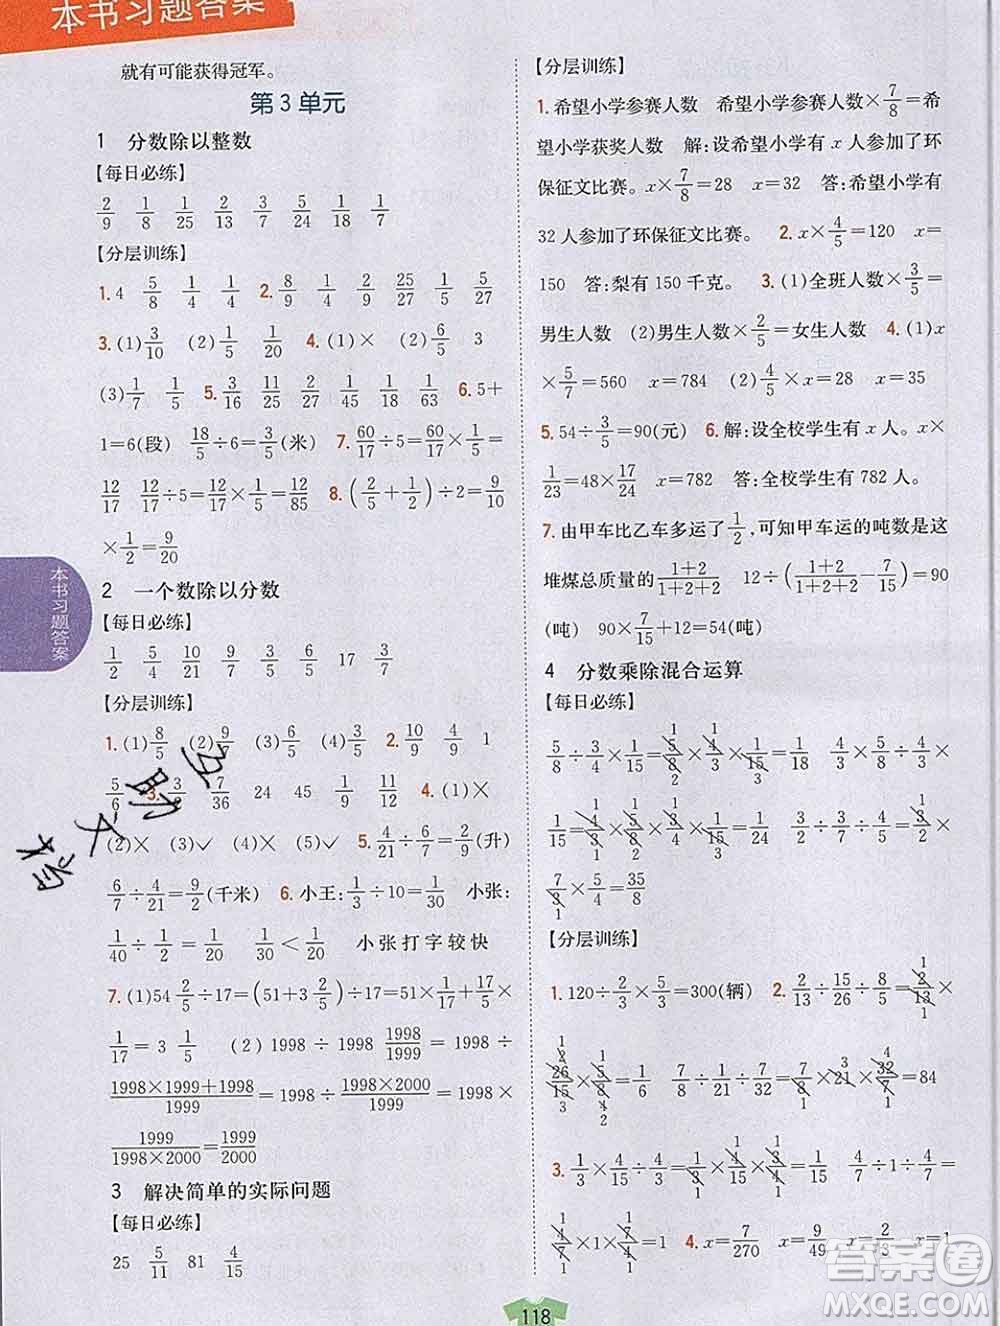 本书习题答案
就有可能获得冠军。
第3单元
1 分数除以整数
【每日必练】
2/9 1/8 1/25 2/13 3/7 5/24 1/18 1/7
【分层训练】
1. 4 5/8 1/4 1/4 2. 8/9 1/4 4/27 25/27 1/5 5/27
3. (1)3/10 (2)1/5 1/20 4. (1)× (2)6/5 3
(3)1/7 1/5 5. 3/16 25/11 11/25 1/45 1/8 1/63 6. 5+
1=6(段) 18/5÷6=3/5(米) 7. 60/17÷5=60/17×1/5=
12/17 12/17÷5=12/17×1/5=12/85 8. (2/5+1/2)÷2=9/10
×1/2=9/20
2 一个数除以分数
【每日必练】
1/2 5/4 10/21 9/20 1/9 6/35 17 3/7
【分层训练】
1. (1)8/5 (2)9/7 (3)6/5 (4)3/5 2. 10/9 4/9 1
5/6 3. 3/8 7/36 24 45 1/9 11/12 4. (1)×
(2)× (3)✓ (4)× (5)✓ 5. 4/21÷6/7=2/9(升)
6/7÷4/21=9/2(千米) 6. 小王:1/3÷10=1/30 小张:
1/40÷1/2=1/20 1/30<1/20 小张打字较快
7. (1)54 2/5÷17=(51+3 2/5)÷17=51×1/17+17/5×
1/17=3 1/5 (2) 1998÷1998 1998/1999=1998÷
1998×1999+1998/1999=1998÷1998×2000/1999=1998×
1999/1998×2000=1999/2000
3 解决简单的实际问题
【每日必练】
25 5/11 81 4/15
【分层训练】
1. 希望小学参赛人数 希望小学参赛人数×7/8=希
望小学获奖人数 解:设希望小学有 x 人参加了环
保征文比赛。x×7/8=28 x=32 答:希望小学有
32 人参加了环保征文比赛。 2. x×4/5=120 x=
150 答:梨有 150 千克。 3. (1)全班人数×3/5=
男生人数 (2)男生人数×2/5=女生人数 4. (1)x
×5/7=560 x=784 (2)4/5×x=28 x=35
5. 54÷3/5=90(元) 6. 解:设全校学生有 x 人。x×
1/23=48×17/24 答:全校学生有 782 人。
7. 由甲车比乙车多运了1/2,可知甲车运的吨数是这
堆煤总质量的1+2/1+2+2 12÷(1+2/1+2+2−7/15)=90
(吨) 90×7/15+12=54(吨)
4 分数乘除混合运算
【每日必练】
5/8÷3/4×1/15=5/8×4/3×1/15=1/18 3/4×5/8÷9/2=
1/15=4/5×3/8×2/15=1/24 2/5÷4/9÷3/2=
7/8×5/4=5/8
【分层训练】
1. 120÷2/3×5/3=300(辆) 2. 2/13÷15/26÷8/5=2/13×
26/15×5/8=1/6 7/8÷1/21÷7/32=7/8×21×32/7=84
3. 1/4×4/15÷1/3=1/4×4/15×3/1=1/5 4/7÷1÷4/7=
4/7×1×7/4=1 4. x=7/270 x=9/49 x=4/21 x=1
118
本书习题答案
答案圈
MXQE.COM